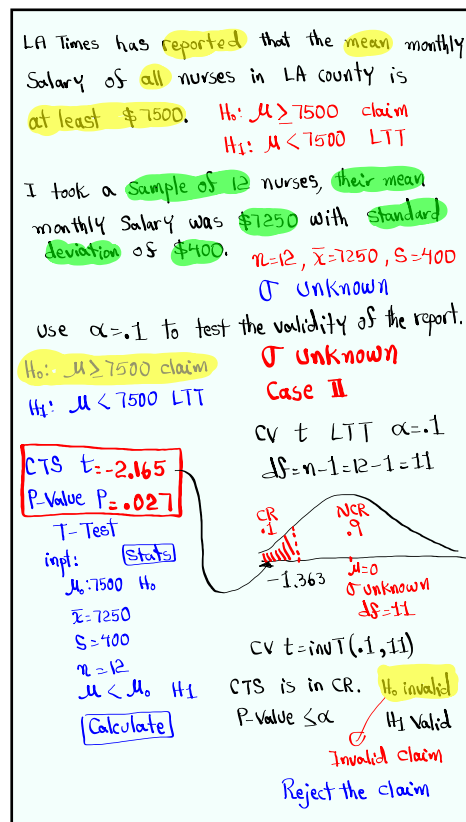 LA Times has reported that the mean monthly
Salary of all nurses in LA county is
at least $7500.
H₀: μ ≥ 7500 claim
H₁: μ < 7500 LTT
I took a Sample of 12 nurses, their mean
monthly Salary was $7250 with standard
deviation of $400.
n=12, x̄=7250, S=400
σ unknown
use α=.1 to test the validity of the report.
H₀: μ ≥ 7500 claim
H₁: μ < 7500 LTT
σ unknown
Case II
CV t LTT α=.1
df=n-1=12-1=11
CTS t=-2.165
P-Value P=.027
T-Test
inpt: Stats
μ₀:7500 H₀
x̄=7250
S=400
n=12
μ < μ₀ H1
Calculate
CR
.1
NCR
.9
-1.363
μ=0
σ unknown
df=11
CV t=invT(.1,11)
CTS is in CR. H₀ invalid
P-Value ≤α H1 Valid
Invalid Claim
Reject the claim